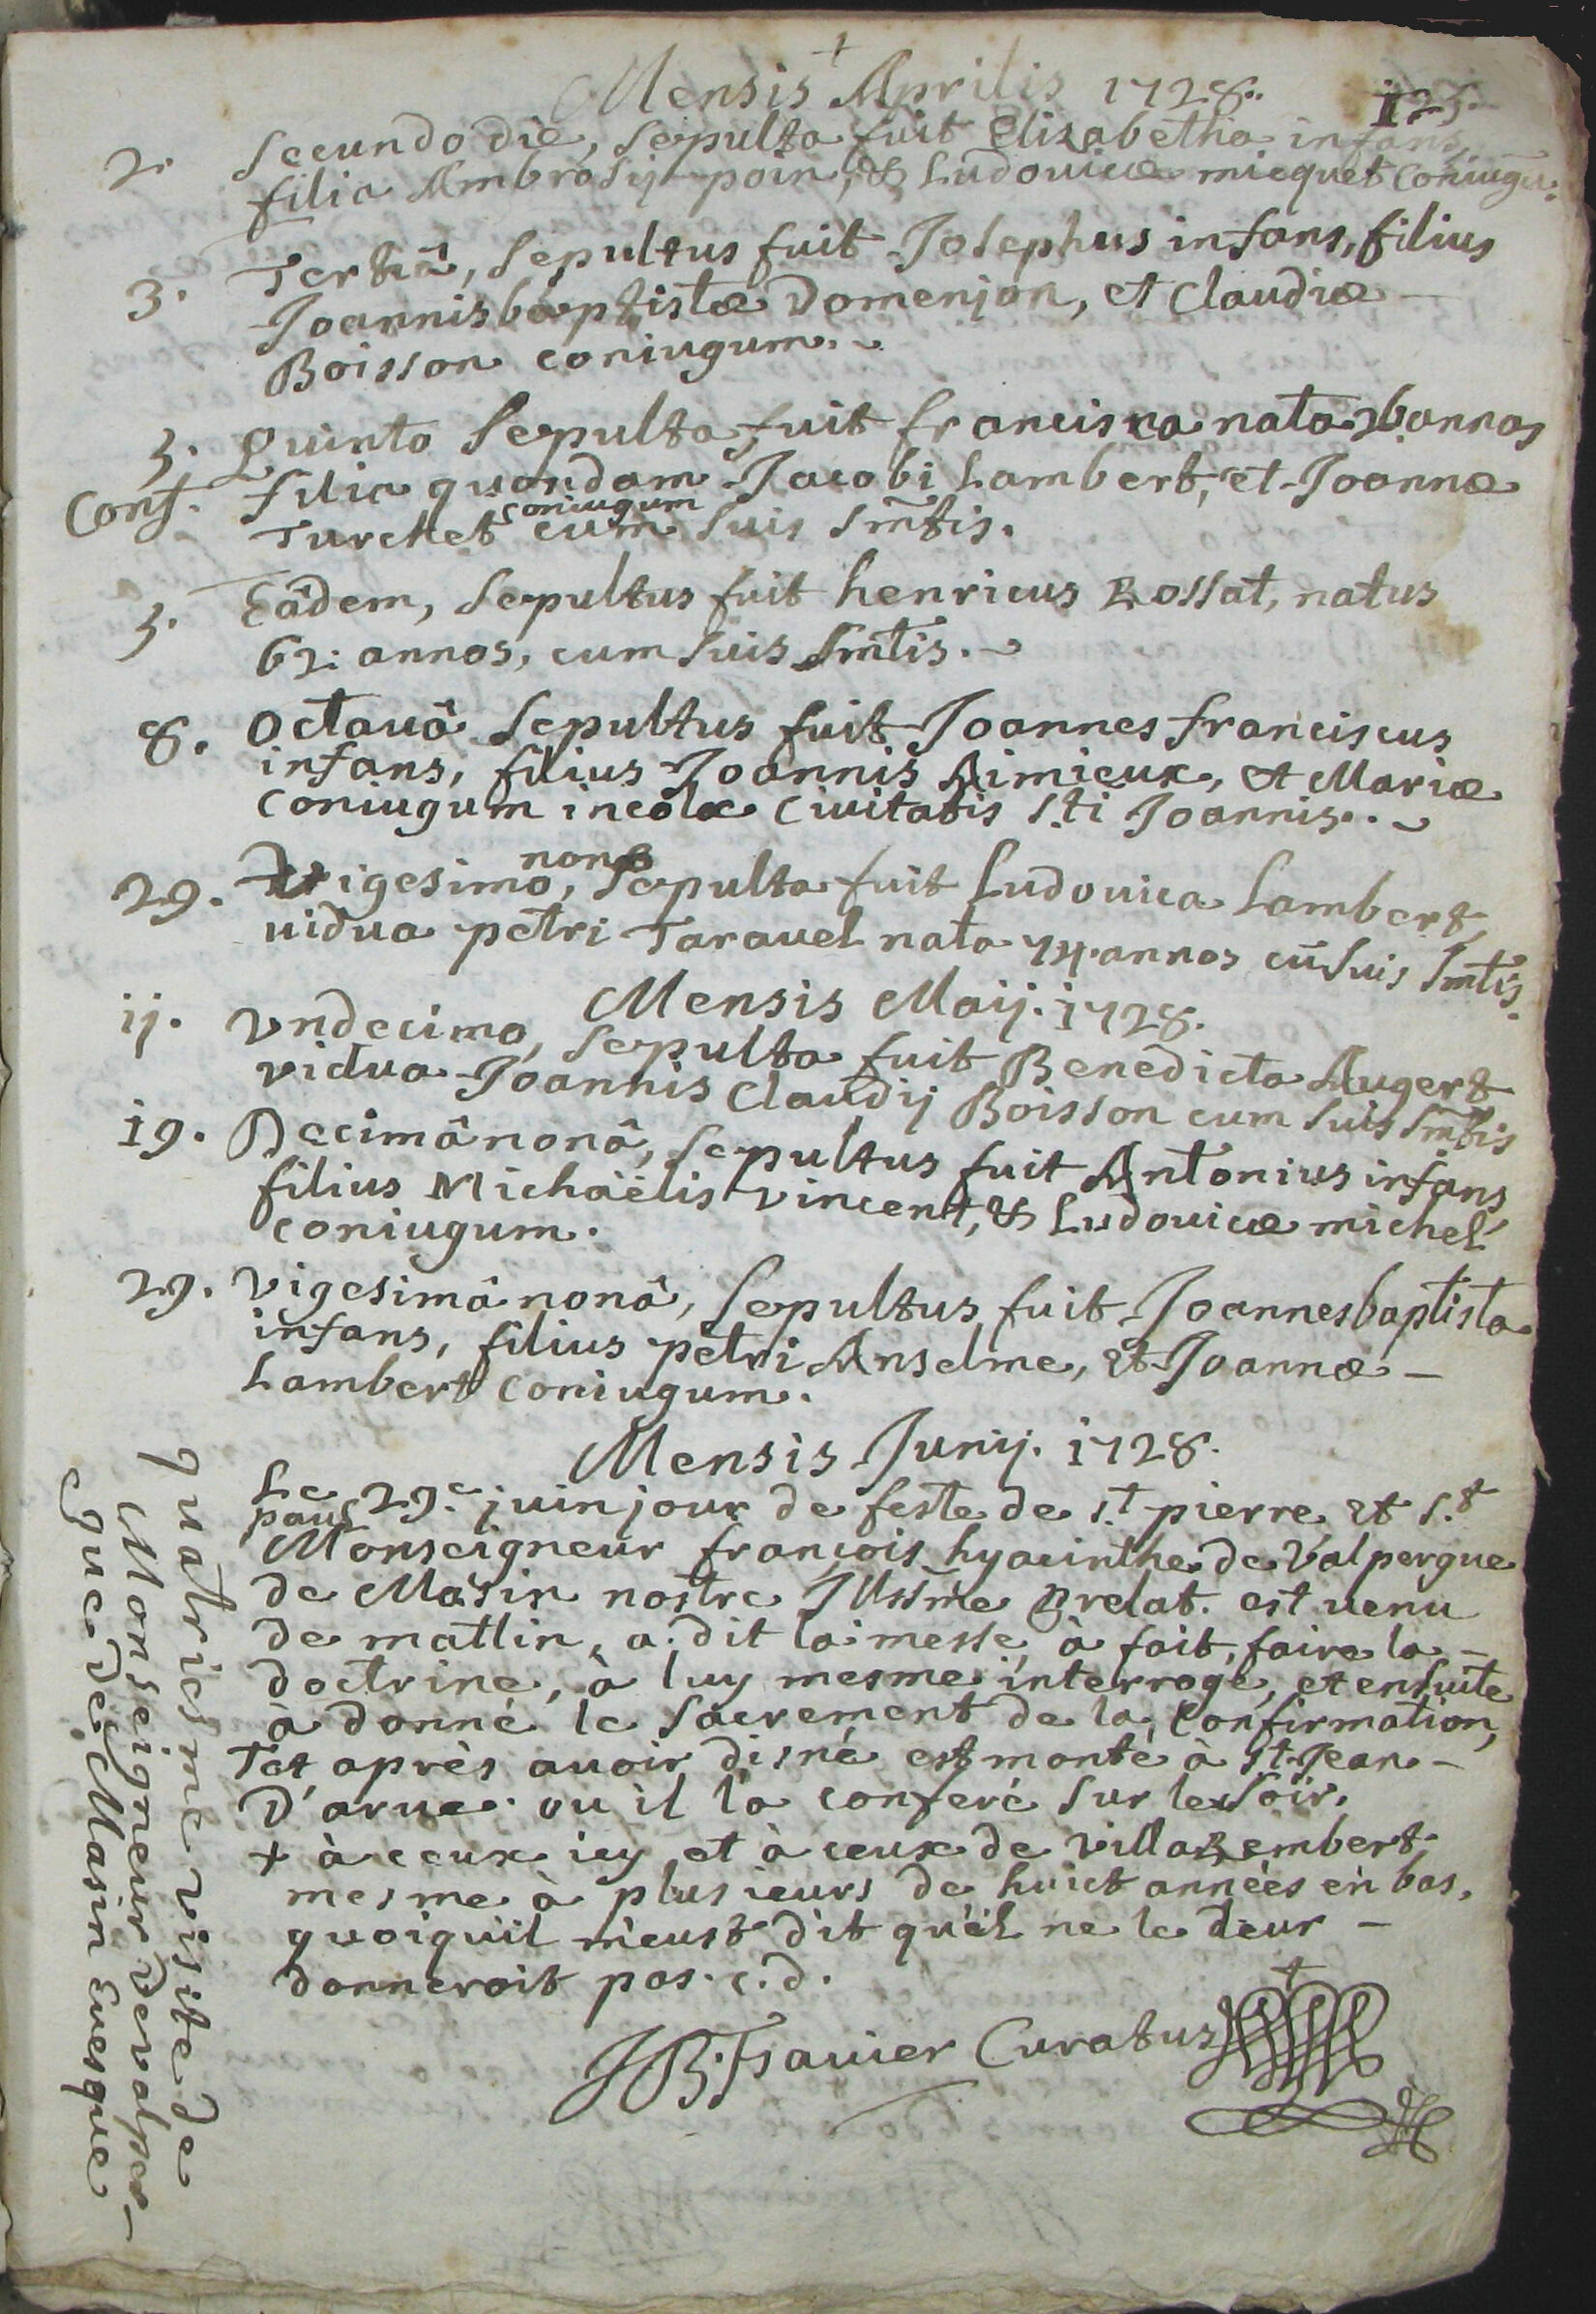 +
Mensis Aprilis 1728.
125.
2. Secundo die, sepulta fuit Elizabetha infans,
filia Ambrosij poin, & Ludovicæ micquet coniugū.
3. Tertiâ, sepultus fuit Josephus infans, filius
Joannisbaptistæ Domenjon, et Claudiæ –
Boisson coniugum.
5. Quinto sepulta fuit francisca nata 26 annos
Conf. filia quondam Jacobi Lambert, et Joannæ
coniugum
Turchet cum suis Sm̄tis.
5. Eâdem, sepultus fuit henricus Rossat, natus
62. annos, cum suis Sm̄tis.
8. Octauâ sepultus fuit Joannes franciscus
infans, filius Joannis Aimieux, et Mariæ
coniugum incolæ Ciuitatis S.ti Joannis.
nono
29. Vigesimo, sepulta fuit Ludouica Lambert,
uidua petri Tarauel nata 74. annos cū suis Sm̄tis.
Mensis Maij. 1728.
ii. Vndecimo, sepulta fuit Benedicta Augert
vidua Joannis Claudij Boisson cum suis Sm̄tis
19. Decimânonâ, sepultus fuit Antonius infans
filius Michaëlis Vincent, & Ludouicæ michel
coniugum.
29. Vigesimânonâ, sepultus fuit Joannesbaptista
infans, filius petri Anselme, et Joannæ –
Lambert coniugum.
Mensis Junij. 1728.
Le 29e. juin jour de feste de s.t pierre et s.t
paul
Monseigneur françois hyacinthe de Valpergue
de Masin nostre Illssme prelat. est uenu
de mattin, a dit la messe, à fait, faire la –
doctrine, à luy mesme interrogé, et ensuite
à donné le sacrement de la, confirmation,
+ et après auoir disné est monté à st. Jean –
D'arue. ou il la conferé sur le soir.
+ à ceux icy et à ceux de villaRembert
mesme à plusieurs de huict années en bas,
quoiqu'il m'eust dit qu'il ne le leur –
donneroit pas. c. d.
JB. Frauier Curatus
quatriesme visite de
Monseigneur de valper–
gue de Masin Euesque